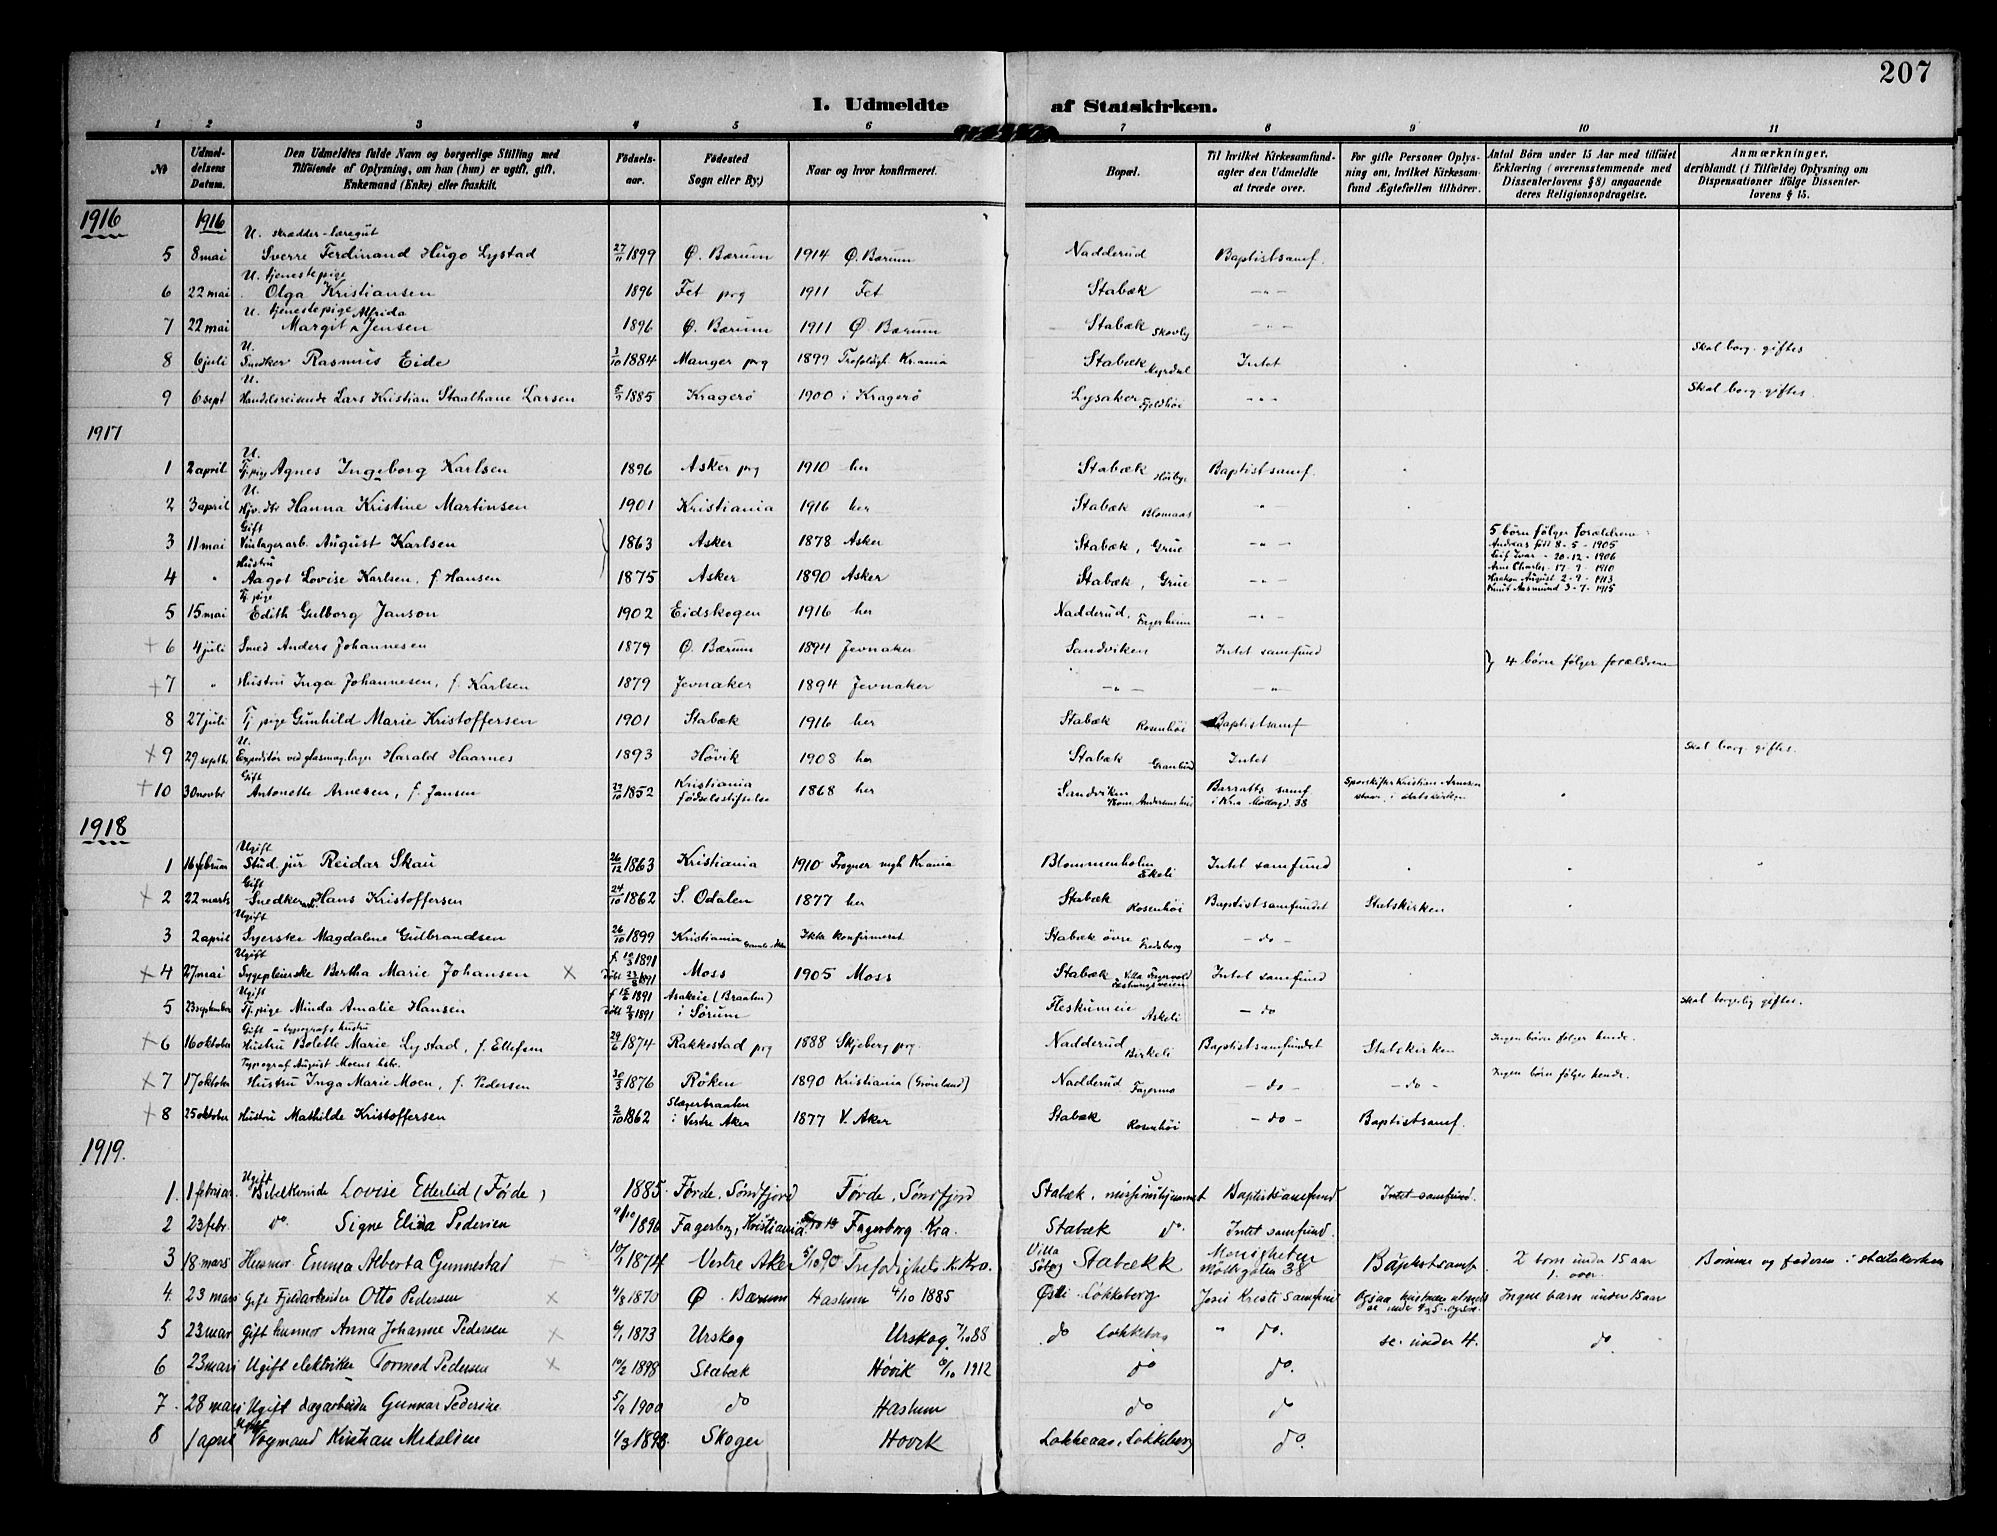 207
I. Udmeldte af Statskirken.
1 2 3 4 5 6 7 8 9 10 11
No
Udmel-
delsens
Datum.
Den Udmeldtes fulde Navn og borgerlige Stilling med
Tilføiende af Oplysning, om han (hun) er ugift, gift,
Enkemand (Enke) eller fraskilt.
Fødsels-
aar.
Fødested
Sogn eller By.)
Naar og hvor konfirmeret.
Bopæl.
Til hvilket Kirkesamfund-
agter den Udmeldte
at træde over.
For gifte Personer Oplys-
ning om, hvilket Kirkesam-
fund Ægtefællen tilhører.
Antal Børn under 15 Aar med tilføiet
Erklæring (overensstemmende med
Dissenterlovens § 8) angaaende
deres Religionsopdragelse.
Anmærkninger.
deriblandt (i Tilfælde) Oplysning om
Dispensationer ifølge Dissenter-
lovens § 15.
1916 1916
U. skrædder-læregut
5 8 mai Sverre Ferdinand Hugo Lystad 27/11 1899 Ø. Bærum 1914 Ø. Bærum Nadderud Baptistsamf.
U. tjenestepige
6 22 mai Olga Kristiansen 1896 Fet prg 1911 Fet Stabæk —"—
U. tjenestepige Alfrida
7 22 mai Margit Jensen 1896 Ø. Bærum 1911 Ø. Bærum Stabæk Skovly —"—
U.
8 6 juli Snedker Rasmus Eide 3/10 1884 Manger prg 1899 Trefoldigh. Kr.ania Stabæk Myrdal Intet Skal borg. giftes
U.
9 6 sept Handelsreisende Lars Kristian Staalhane Larsen 1885 Kragerø 1900 i Kragerø Lysaker Fjeldhøi —"— Skal borg. giftes
1917
U.
1 2 april Tj.pig Agnes Ingeborg Karlsen 1896 Asker prg 1910 her Stabæk Høiby Baptistsamf.
U.
2 3 april Hanna Kristine Martinsen 1901 Kristiania 1916 her Stabæk Blomaas —"—
Gift
3 11 mai Vinlagerarb. August Karlsen 1863 Asker 1878 Asker Stabæk, Grue —"— 5 børn følger forældrene:
Andreas født 8-5-1905
Leif Ivar - 20-12-1906
Arne Charles - 17-9-1910
Haakon August 2-9-1913
Knut Aasmund 3-7-1915
Hustru
4 " Aagot Lovise Karlsen, f. Hansen 1875 Asker 1890 Asker Stabæk, Grue —"—
Tj. pige
5 15 mai Edith Gulborg Janson 1902 Eidskogen 1916 her Nadderud, Fagerheim —"—
6 4 juli Smed Anders Johannesen 1879 Ø. Bærum 1894 Jevnaker Sandviken Intet samfund } 4 børn følger forældrene
7 " Hustru Inga Johannesen, f. Karlsen 1879 Jevnaker 1894 Jevnaker —"— —"—
8 27 juli Tj. pige Gunhild Marie Kristoffersen 1901 Stabæk 1916 her Stabæk Rosenhøi Baptistsamf
U.
9 29 septbr Expeditør ved glasmag.lager Harald Haarnes 1893 Høvik 1908 her Stabæk Granlund Intet Skal borg. giftes.
Gift
10 30 novbr Antonette Arnesen, f. Jansen 22/10 1852 Kristiania fødselsstiftelse 1868 her Sandviken Andersens hus Barratts samf i Kria Møllergd. 38 Sporskifter Kristian Arnesen staar i statskirken
1918
Ugift
1 16 februar Stud. jur Reidar Skau 26/12 1863 Kristiania 1910 Frogner mgh Kr.ania Blommenholm Ekeli Intet samfund
Gift
2 22 marts Snedkerarb. Hans Kristoffersen 24/10 1862 S. Odalen 1877 her Stabæk Rosenhøi Baptistsamfundet Statskirken
Ugift
3 2 april Syerske Magdalene Gulbrandsen 26/10 1899 Kristiania Gamle Aker Ikke konfirmeret Stabæk øvre Fredsborg — do —
Ugift
4 27 mai Sygepleierske Bertha Marie Johansen f. 1891 Døbt 1891 Moss 1905 Moss Stabæk Villa Fagervold Festningsveien Intet samfund
Ugift
5 23 september Tj. pige Minda Amalie Hansen 1891 Døbt 1891 Asakeie (Braaten) i Sørum Fleskumeie Askeli — do Skal borgerlig giftes.
Gift - typografs hustru
6 16 oktober Hustru Bolette Marie Lystad, f. Ellefsen 29/6 1874 Rakkestad prg 1888 Skjeberg prg. Nadderud Birkeli Baptistsamfundet Statskirken Ingen børn følger hende.
Typograf August Moens hstr.
7 17 oktober Hustru Inga Marie Moen, f. Pedersen 30/3 1876 Røken 1890 Kristiania (Grønland) Nadderud Fagermo — do — — do — Ingen børn følger hende.
8 25 oktober Hustru Mathilde Kristoffersen 2/10 1862 Slagerbraaten i Vestre Aker 1877 V. Aker Stabæk Rosenhøi — do — Baptistsamf.
1919.
Ugift
1. 1 februar Bibelkvinde Lovise Etterlid (Førde) 1885. Førde, Søndfjord Førde, Søndfjord Stabæk, misjonshjemmet Baptistsamfund Intet samfund.
2 23 febr. do. Signe Elina Pedersen 9/10 1896 Fagerborg, Kristiania Fagerborg Kra. Stabæk do. Intet samfund.
3 18 mars Husmor Emma Alberta Gunnestad 10/1 1874 Vestre Aker 5/10 90 Trefoldighets K. Kra. Villa Solborg Stabækk Menigheten Møllergaten 38 Baptistsamf 2 born under 15 aar 1. over. Børnene og faderen i statskirken
4. 23 mars Gift Fjeldarbeider Otto Pedersen 4/8 1870 Ø. Bærum Haslum 4/10 1885 Østli Løkkeberg Jesu Kristi Samfund Ogsaa hustruen utmeldt se under 4 og 5. Ingen barn under 15 aar
5 23 mars Gift husmor Anna Johanne Pedersen 6/1 1873 Urskog Urskog 7/10 88 do Løkkeberg " do. se under 4. do.
6 23 mars Ugift elektriker Tormod Pedersen 10/2 1898 Stabæk Høvik 6/10 1912 do do.
7. 28 mars Ugift dagarbeider Gunnar Pedersen 5/9 1900 do Haslum do do
8 1 april Ugift Vognmand Kristian Mikalsen 1/3 1898. Skoger Høvik Løkkeaas, Løkkeberg do.